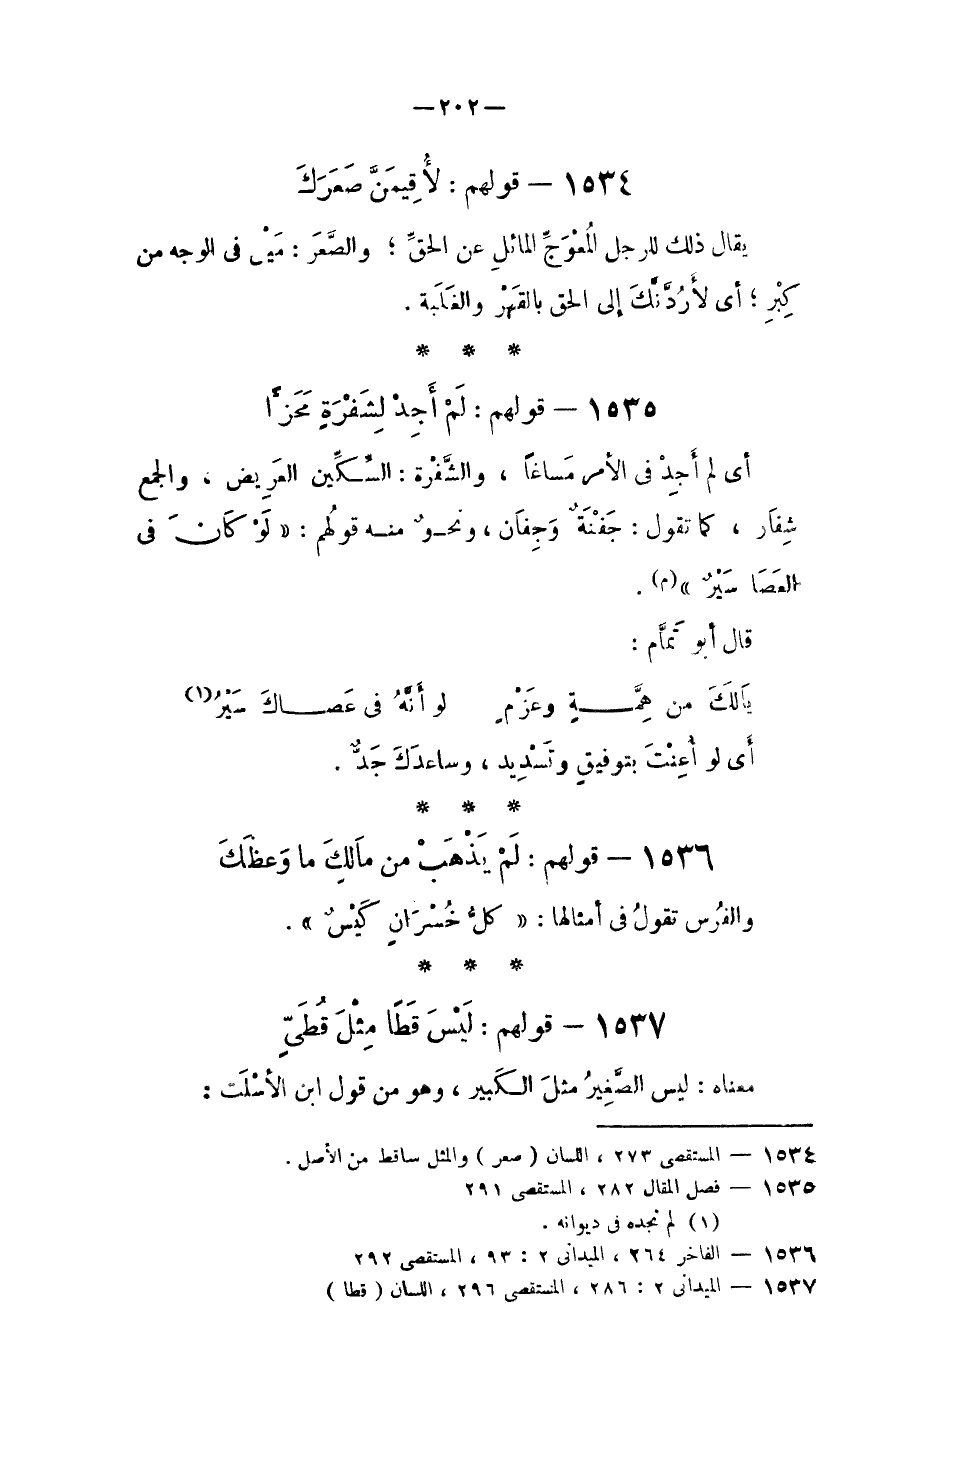 —٢٠٢—
١٥٣٤ — قولهم : لَأُقِيمَنَّ صَعَرَكَ
يقال ذلك للرجل المُعْوَجِّ المائلِ عن الحقِّ ؛ والصَّعَرَ : مَيْل فى الوجه من
كِبْرِ ؛ أى لأَرُدَّنَّكَ إلى الحق بالقَهْرِ والغَلَبَة .
* * *
١٥٣٥ — قولهم : لَمْ أَجِدْ لِشَفْرَةٍ مَحَزًّا
أى لم أَجِدْ فى الأمر مَساغًا ، والشَّفْرة : السِّكِّين العَرِيض ، والجمع
شِفَار ، كما تقول : جَفْنَةٌ وَجِفَان ، ونحـوٌ منـه قولُهم : « لَوْ كَانَ فى
العَصَا سَيْرٌ »(م) .
قال أبو تَمَّام :
يَالَكَ من هِمَّـــةٍ وعَزْمٍ لو أَنَّهُ فى عَصـــاكَ سَيْرُ(١)
أَى لو أُعِنْتَ بتوفيقٍ وتَسْدِيد ، وساعدَكَ جَدٌّ .
* * *
١٥٣٦ — قولهم : لَمْ يَذْهَبْ من مالَكِ ما وَعظَكَ
والفُرس تقولُ فى أمثالها : « كلُّ خُسْرَانٍ كَيْسٌ » .
* * *
١٥٣٧ — قولهم : لَيْسَ قَطًا مِثْلَ قُطَىٍّ
معناه : ليس الصَّغِيرُ مثلَ الكَبير ، وهو من قول ابن الأسْلَت :
١٥٣٤ — المستقصى ٢٧٣ ، اللسان ( صعر ) والمثل ساقط من الأصل .
١٥٣٥ — فصل المقال ٢٨٢ ، المستقصى ٢٩١
(١) لم نجده فى ديوانه .
١٥٣٦ — الفاخر ٢٦٤ ، الميدانى ٢ : ٩٣ ، المستقصى ٢٩٢
١٥٣٧ — الميدانى ٢ : ٢٨٦ ، المستقصى ٢٩٦ ، اللسان ( قطا )